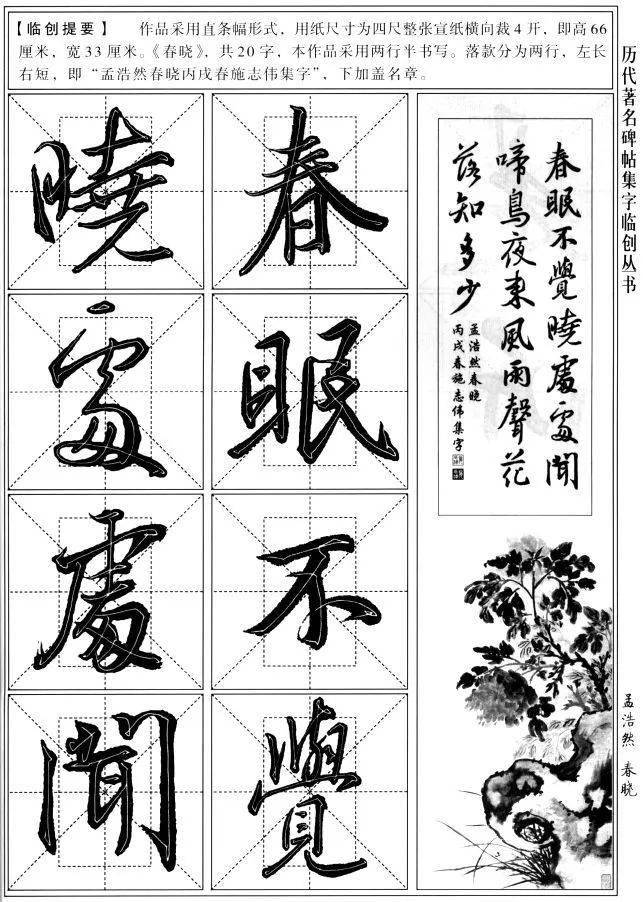 【临创提要】 作品采用直条幅形式，用纸尺寸为四尺整张宣纸横向裁4开，即高66
厘米，宽33厘米。《春晓》，共20字，本作品采用两行半书写。落款分为两行，左长
右短，即“孟浩然春晓丙戌春施志伟集字”，下加盖名章。
历代著名碑帖集字临创丛书
春眠不覺曉處處聞
啼鳥夜来風雨聲花
落知多少
孟浩然春晓
丙戌春施志伟集字
春眠不覺
曉處處聞
孟浩然 春晓